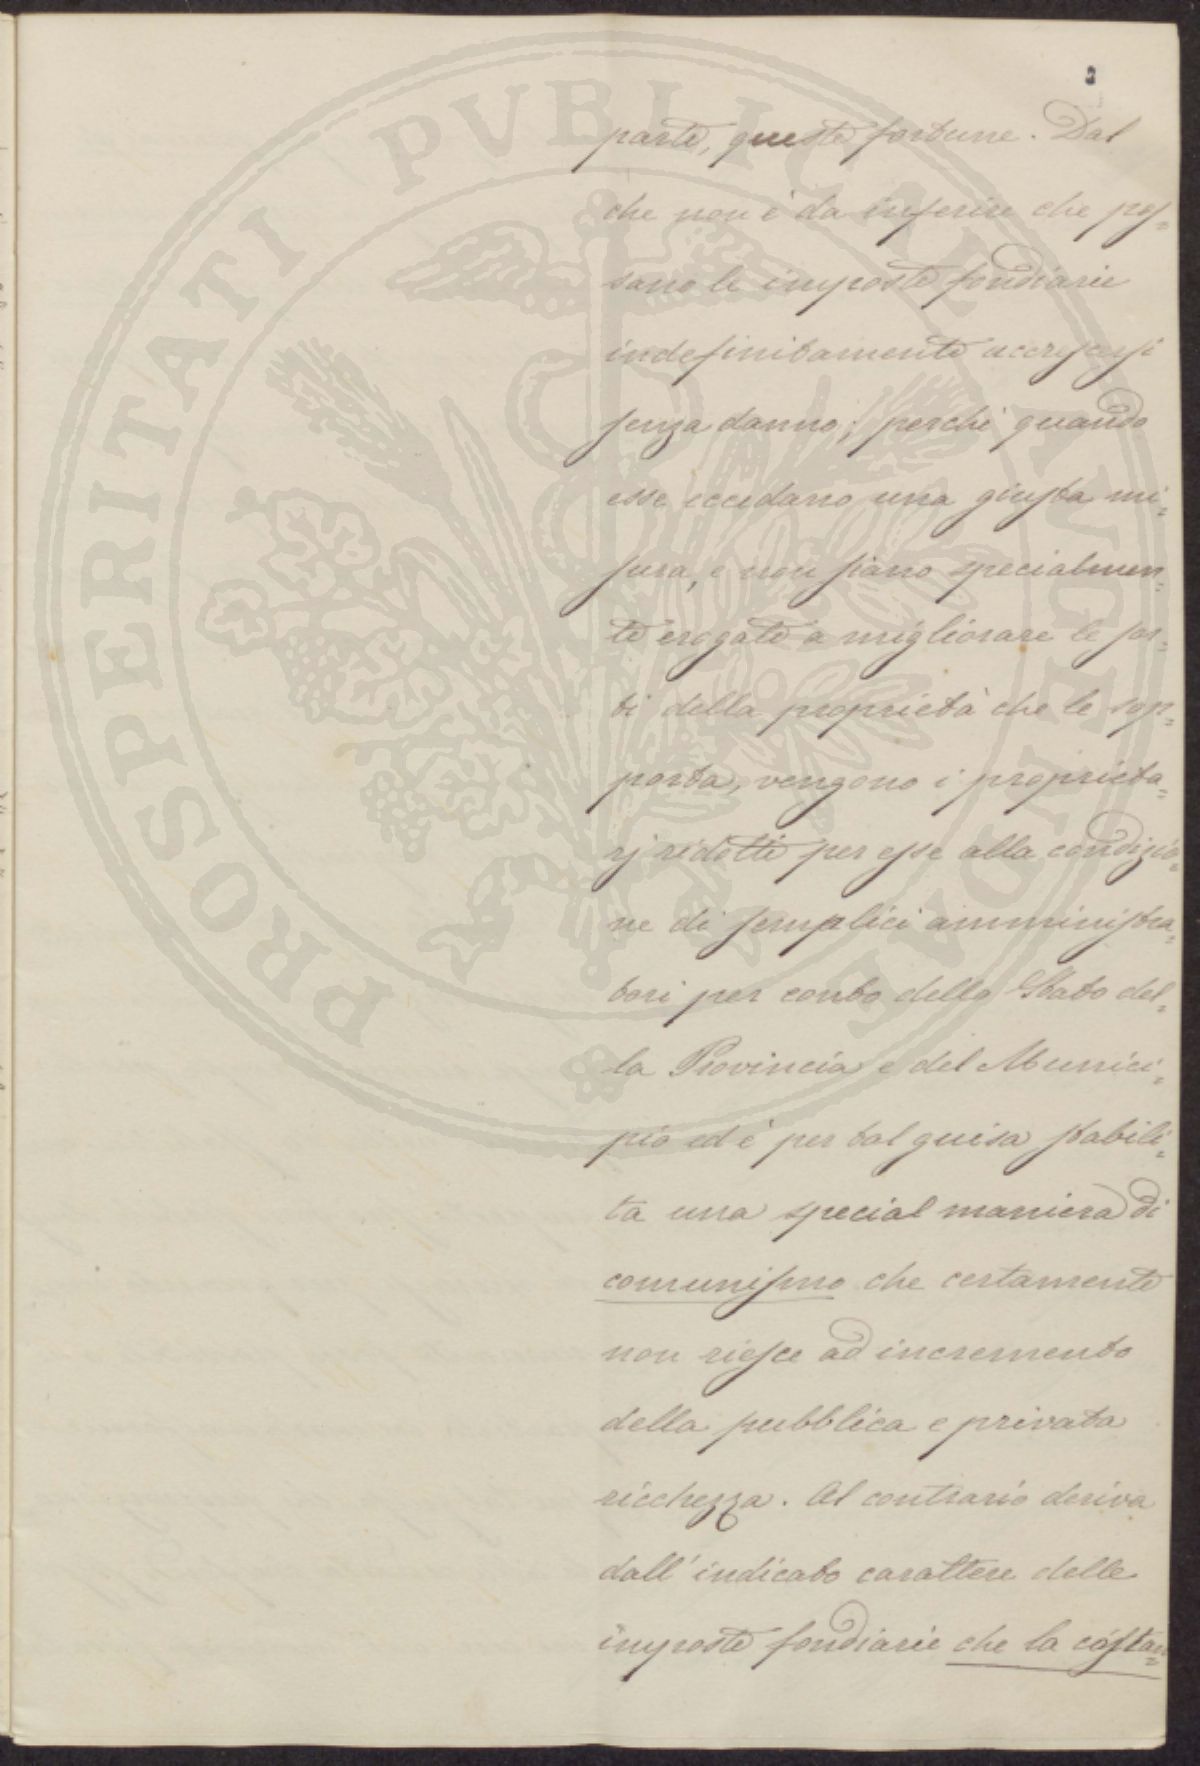 2
parte, queste fortune. Dal
che non è da inferire che pos=
sano le imposte fondiarie
indefinitamente accrescersi
senza danno; perchè quando
esse eccedano una giusta mi=
sura, e non siano specialmen=
te erogate a migliorare le sor=
ti della proprietà che le sop=
porta, vengono i proprieta=
rj ridotti per esse alla condizio=
ne di semplici amministra=
tori per conto dello Stato del=
la Provincia e del Munici=
pio ed è per tal guisa stabili=
ta una special maniera di
comunismo che certamente
non riesce ad incremento
della pubblica e privata
ricchezza. Al contrario deriva
dall'indicato carattere delle
imposte fondiarie che la costan=
PROSPERITATI PVBLICAE AVGENDAE